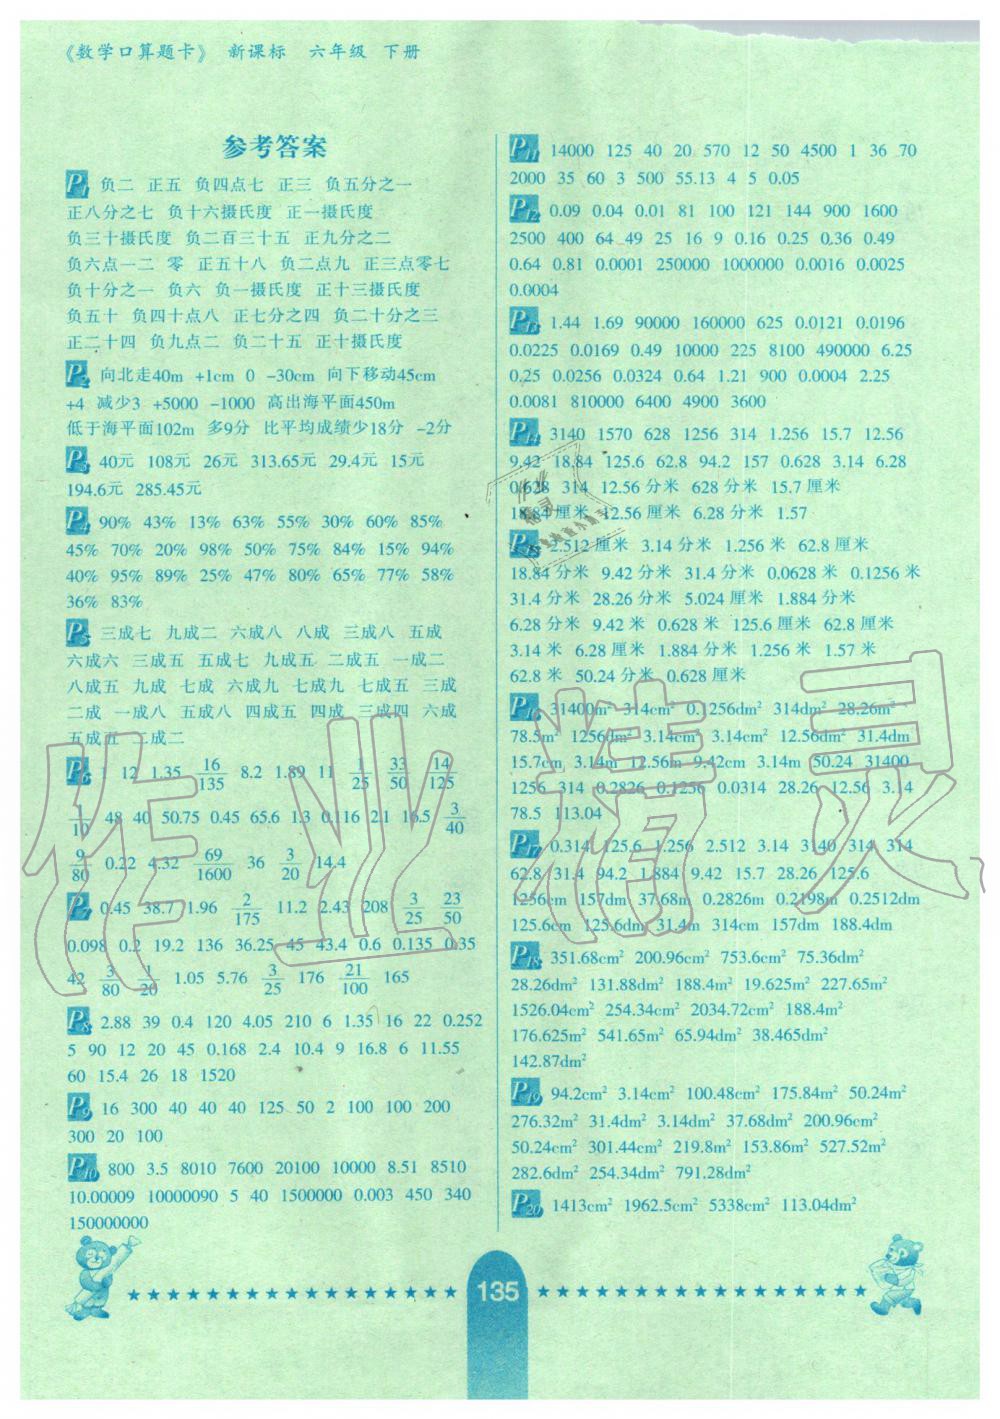 《数学口算题卡》 新课标 六年级 下册
参考答案
P1 负二 正五 负四点七 正三 负五分之一
正八分之七 负十六摄氏度 正一摄氏度
负三十摄氏度 负二百三十五 正九分之二
负六点一二 零 正五十八 负二点九 正三点零七
负十分之一 负六 负一摄氏度 正十三摄氏度
负五十 负四十点八 正七分之四 负二十分之三
正二十四 负九点二 负二十五 正十摄氏度
P2 向北走40m +1cm 0 -30cm 向下移动45cm
+4 减少3 +5000 -1000 高出海平面450m
低于海平面102m 多9分 比平均成绩少18分 -2分
P3 40元 108元 26元 313.65元 29.4元 15元
194.6元 285.45元
P4 90% 43% 13% 63% 55% 30% 60% 85%
45% 70% 20% 98% 50% 75% 84% 15% 94%
40% 95% 89% 25% 47% 80% 65% 77% 58%
36% 83%
P5 三成七 九成二 六成八 八成 三成八 五成
六成六 三成五 五成七 九成五 二成五 一成二
八成五 九成 七成 六成九 七成九 七成五 三成
二成 一成八 五成八 四成五 四成 三成四 六成
五成五 二成二
P6 1 12 1.35 16/135 8.2 1.89 11 1/25 33/50 14/125
1/10 48 40 50.75 0.45 65.6 1.3 0.116 2.1 16.5 3/40
9/80 0.22 4.32 69/1600 36 3/20 14.4
P7 0.45 38.7 1.96 2/175 11.2 2.43 208 3/25 23/50
0.098 0.2 19.2 136 36.25 45 43.4 0.6 0.135 0.35
42 3/80 1/20 1.05 5.76 3/25 176 21/100 165
P8 2.88 39 0.4 120 4.05 210 6 1.35 16 22 0.252
5 90 12 20 45 0.168 2.4 10.4 9 16.8 6 11.55
60 15.4 26 18 1520
P9 16 300 40 40 40 125 50 2 100 100 200
300 20 100
P10 800 3.5 8010 7600 20100 10000 8.51 8510
10.00009 10000090 5 40 1500000 0.003 450 340
150000000
P11 14000 125 40 20 570 12 50 4500 1 36 70
2000 35 60 3 500 55.13 4 5 0.05
P12 0.09 0.04 0.01 81 100 121 144 900 1600
2500 400 64 49 25 16 9 0.16 0.25 0.36 0.49
0.64 0.81 0.0001 250000 1000000 0.0016 0.0025
0.0004
P13 1.44 1.69 90000 160000 625 0.0121 0.0196
0.0225 0.0169 0.49 10000 225 8100 490000 6.25
0.25 0.0256 0.0324 0.64 1.21 900 0.0004 2.25
0.0081 810000 6400 4900 3600
P14 3140 1570 628 1256 314 1.256 15.7 12.56
9.42 18.84 125.6 62.8 94.2 157 0.628 3.14 6.28
0.628 314 12.56分米 628分米 15.7厘米
18.84厘米 12.56厘米 6.28分米 1.57
P15 2.512厘米 3.14分米 1.256米 62.8厘米
18.84分米 9.42分米 31.4分米 0.0628米 0.1256米
31.4分米 28.26分米 5.024厘米 1.884分米
6.28分米 9.42米 0.628米 125.6厘米 62.8厘米
3.14米 6.28厘米 1.884分米 1.256米 1.57米
62.8米 50.24分米 0.628厘米
P16 31400m² 314cm² 0.1256dm² 314dm² 28.26m²
78.5m² 1256dm² 3.14cm² 3.14cm² 12.56dm² 31.4dm
15.7cm 3.14m 12.56m 9.42cm 3.14m 50.24 31400
1256 314 0.2826 0.1256 0.0314 28.26 12.56 3.14
78.5 113.04
P17 0.314 125.6 1.256 2.512 3.14 3140 314 314
62.8 31.4 94.2 1.884 9.42 15.7 28.26 125.6
1256cm 157dm 37.68m 0.2826m 0.2198m 0.2512dm
125.6cm 125.6dm 31.4m 314cm 157dm 188.4dm
P18 351.68cm² 200.96cm² 753.6cm² 75.36dm²
28.26dm² 131.88dm² 188.4m² 19.625m² 227.65m²
1526.04cm² 254.34cm² 2034.72cm² 188.4m²
176.625m² 541.65m² 65.94dm² 38.465dm²
142.87dm²
P19 94.2cm² 3.14cm² 100.48cm² 175.84m² 50.24m²
276.32m² 31.4dm² 3.14dm² 37.68dm² 200.96cm²
50.24cm² 301.44cm² 219.8m² 153.86m² 527.52m²
282.6dm² 254.34dm² 791.28dm²
P20 1413cm² 1962.5cm² 5338cm² 113.04dm²
135
作业精灵